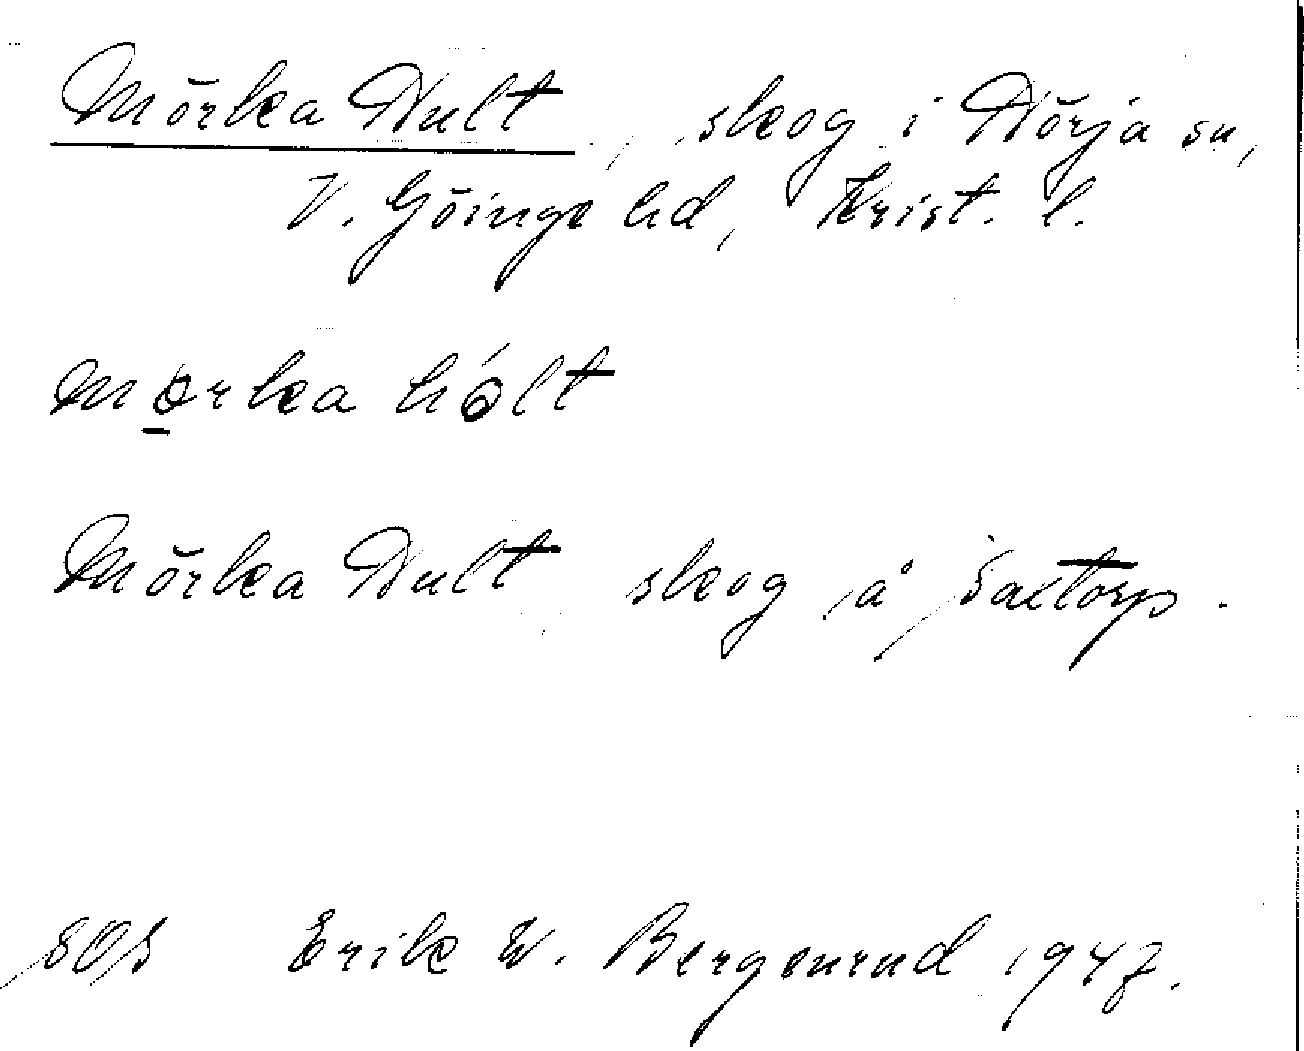 Mörka Hult, skog i Nörja sn,
V. Göinge hd, Krist. l.
mo̱rka hólt
Mörka Hult skog å
SOS Erik W. Bergenrud 1947.